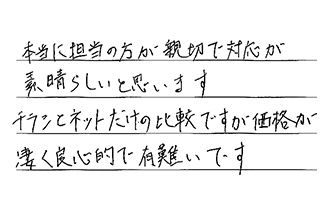 本当に担当の方が親切で対応が
素晴らしいと思います
チラシとネットだけの比較ですが価格が
凄く良心的で有難いです